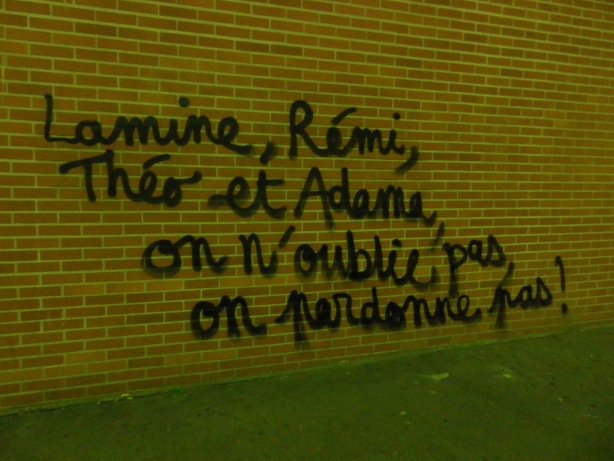 Lamine, Rémi,
Théo et Adama,
on n'oublie pas,
on pardonne pas!